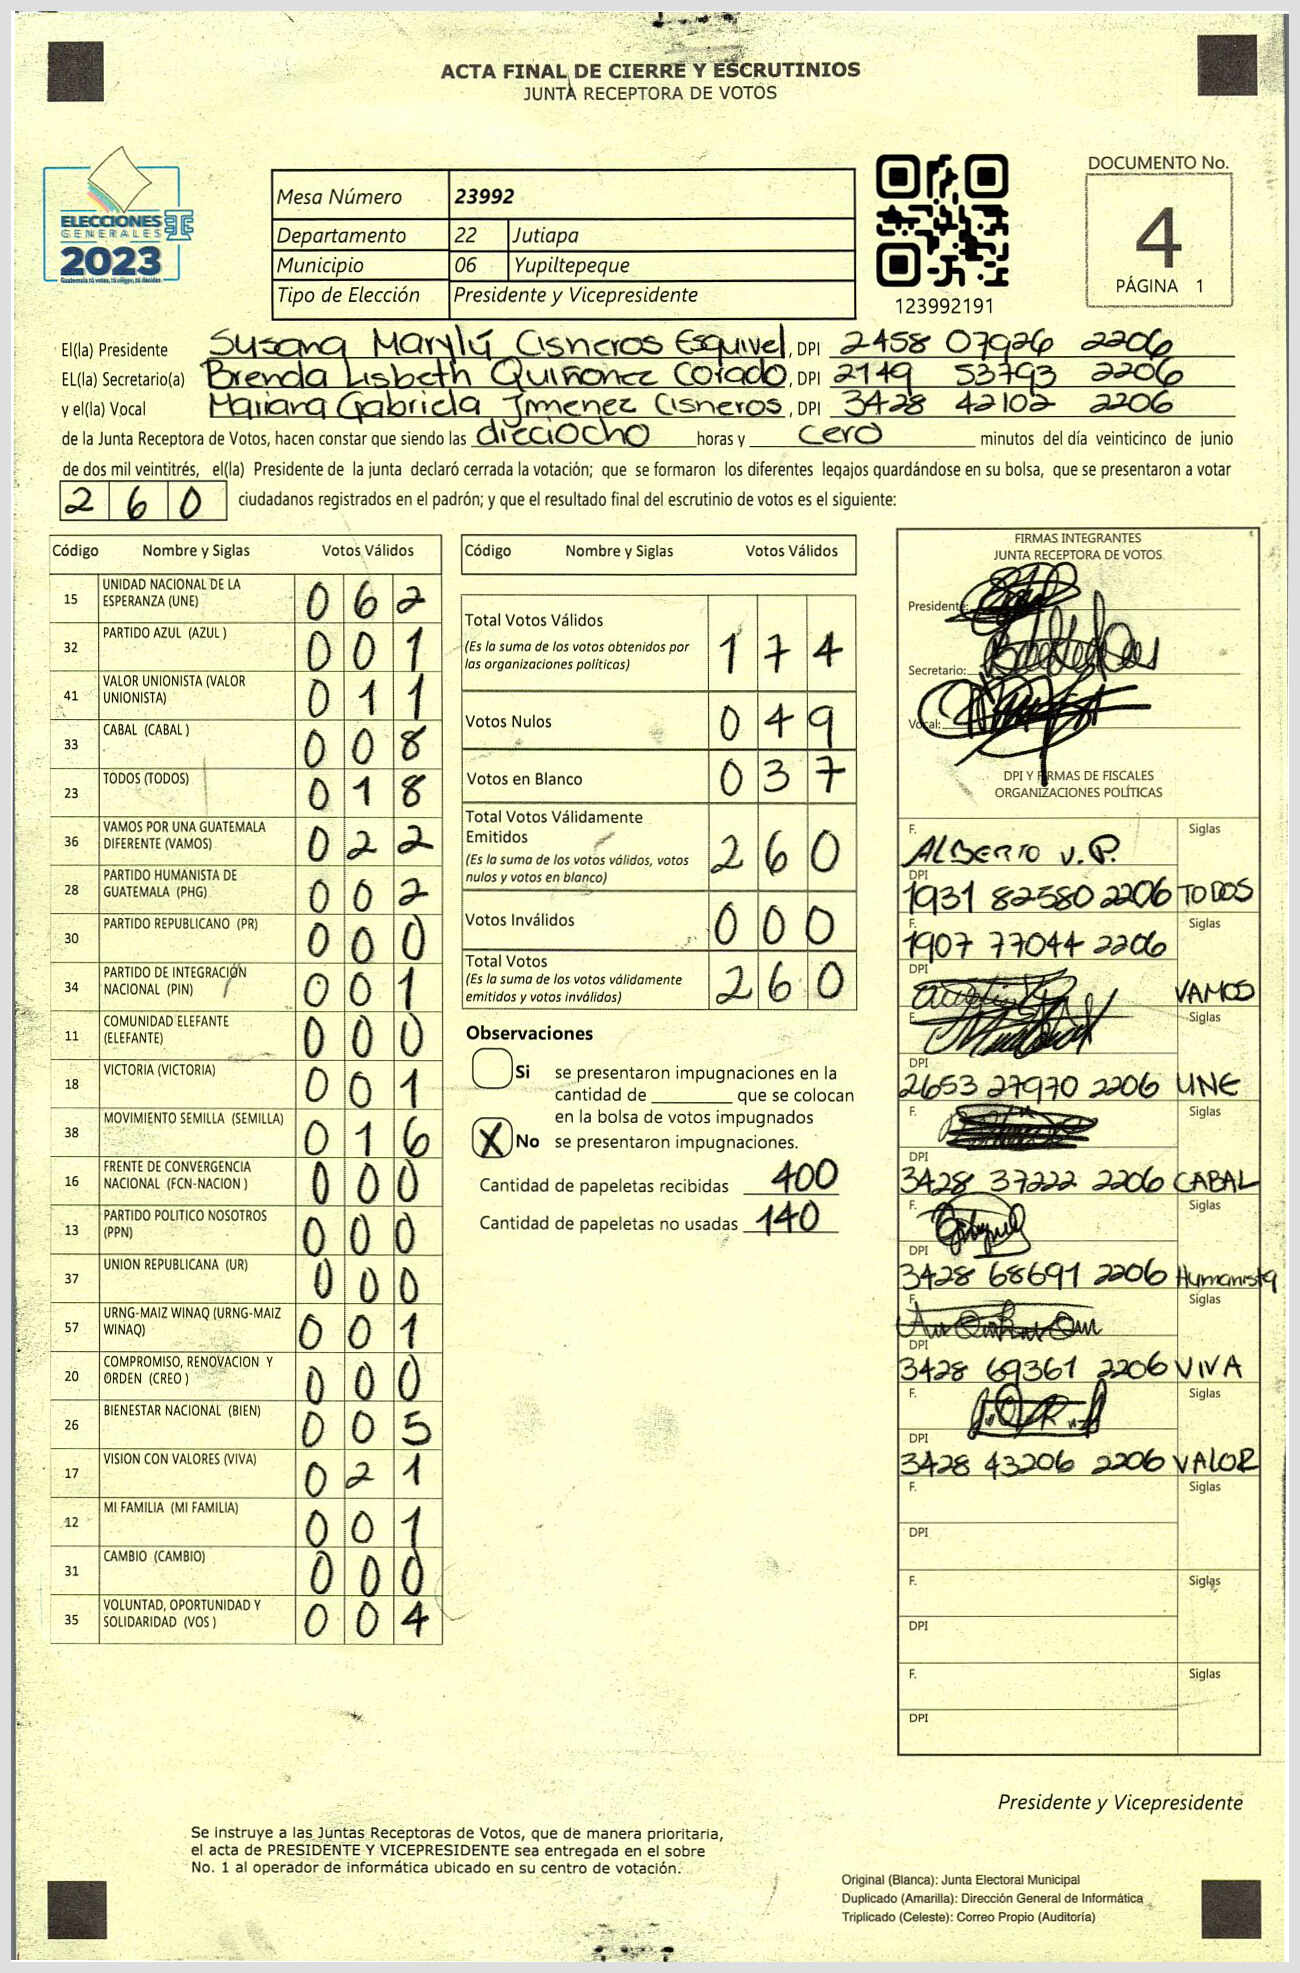 ACTA FINAL DE CIERRE Y ESCRUTINIOS
JUNTA RECEPTORA DE VOTOS
ELECCIONES
GENERALES
2023
Guatemala tú votas, tú eliges, tú decides
Mesa Número 23992
Departamento 22 Jutiapa
Municipio 06 Yupiltepeque
Tipo de Elección Presidente y Vicepresidente
123992191
DOCUMENTO No.
4
PÁGINA 1
El(la) Presidente Susana Marylú Cisneros Esquivel, DPI 2458 07926 2206
EL(la) Secretario(a) Brenda Lisbeth Quiñonez Corado, DPI 2149 53793 2206
y el(la) Vocal Mariana Gabriela Jimenez Cisneros, DPI 3428 42102 2206
de la Junta Receptora de Votos, hacen constar que siendo las dieciocho horas y cero minutos del día veinticinco de junio
de dos mil veintitrés, el(la) Presidente de la junta declaró cerrada la votación; que se formaron los diferentes legajos guardándose en su bolsa, que se presentaron a votar
260 ciudadanos registrados en el padrón; y que el resultado final del escrutinio de votos es el siguiente:
Código Nombre y Siglas Votos Válidos
15 UNIDAD NACIONAL DE LA ESPERANZA (UNE) 062
32 PARTIDO AZUL (AZUL ) 001
41 VALOR UNIONISTA (VALOR UNIONISTA) 011
33 CABAL (CABAL ) 008
23 TODOS (TODOS) 018
36 VAMOS POR UNA GUATEMALA DIFERENTE (VAMOS) 022
28 PARTIDO HUMANISTA DE GUATEMALA (PHG) 002
30 PARTIDO REPUBLICANO (PR) 000
34 PARTIDO DE INTEGRACIÓN NACIONAL (PIN) 001
11 COMUNIDAD ELEFANTE (ELEFANTE) 000
18 VICTORIA (VICTORIA) 001
38 MOVIMIENTO SEMILLA (SEMILLA) 016
16 FRENTE DE CONVERGENCIA NACIONAL (FCN-NACION ) 000
13 PARTIDO POLITICO NOSOTROS (PPN) 000
37 UNION REPUBLICANA (UR) 000
57 URNG-MAIZ WINAQ (URNG-MAIZ WINAQ) 001
20 COMPROMISO, RENOVACION Y ORDEN (CREO ) 000
26 BIENESTAR NACIONAL (BIEN) 005
17 VISION CON VALORES (VIVA) 021
12 MI FAMILIA (MI FAMILIA) 001
31 CAMBIO (CAMBIO) 000
35 VOLUNTAD, OPORTUNIDAD Y SOLIDARIDAD (VOS ) 004
Código Nombre y Siglas Votos Válidos
Total Votos Válidos 174
(Es la suma de los votos obtenidos por
las organizaciones políticas)
Votos Nulos 049
Votos en Blanco 037
Total Votos Válidamente
Emitidos 260
(Es la suma de los votos válidos, votos
nulos y votos en blanco)
Votos Inválidos 000
Total Votos 260
(Es la suma de los votos válidamente
emitidos y votos inválidos)
Observaciones
Si se presentaron impugnaciones en la
cantidad de ________ que se colocan
en la bolsa de votos impugnados
X No se presentaron impugnaciones.
Cantidad de papeletas recibidas 400
Cantidad de papeletas no usadas 140
FIRMAS INTEGRANTES
JUNTA RECEPTORA DE VOTOS
Presidente:
Secretario:
Vocal:
DPI Y FIRMAS DE FISCALES
ORGANIZACIONES POLÍTICAS
F. Siglas
ALBERTO V. P.
DPI
1931 82580 2206 TODOS
F. Siglas
1907 77044 2206
DPI
VAMOS
F. Siglas
DPI
2653 27970 2206 UNE
F. Siglas
DPI
3428 37222 2206 CABAL
F. Siglas
DPI
3428 68691 2206 Humanista
F. Siglas
DPI
3428 69361 2206 VIVA
F. Siglas
DPI
3428 43206 2206 VALOR
F. Siglas
DPI
F. Siglas
DPI
F. Siglas
DPI
Presidente y Vicepresidente
Se instruye a las Juntas Receptoras de Votos, que de manera prioritaria,
el acta de PRESIDENTE Y VICEPRESIDENTE sea entregada en el sobre
No. 1 al operador de informática ubicado en su centro de votación.
Original (Blanca): Junta Electoral Municipal
Duplicado (Amarilla): Dirección General de Informática
Triplicado (Celeste): Correo Propio (Auditoría)